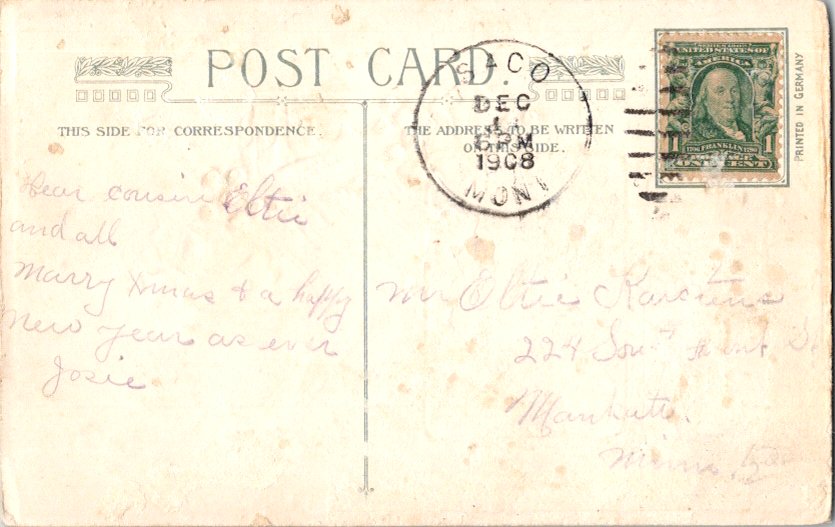 POST CARD
THIS SIDE FOR CORRESPONDENCE.
THE ADDRESS TO BE WRITTEN
ON THIS SIDE.
SACO
DEC
6PM
1908
MONT
SERIES 1902
UNITED STATES OF
AMERICA
1706 FRANKLIN 1790
1 1
POSTAGE
ONE CENT
PRINTED IN GERMANY
Dear cousin Eltie
and all
Marry Xmas & a happy
New Year as ever
Josie
Mr Eltie
224 St.
Mankato
Minn